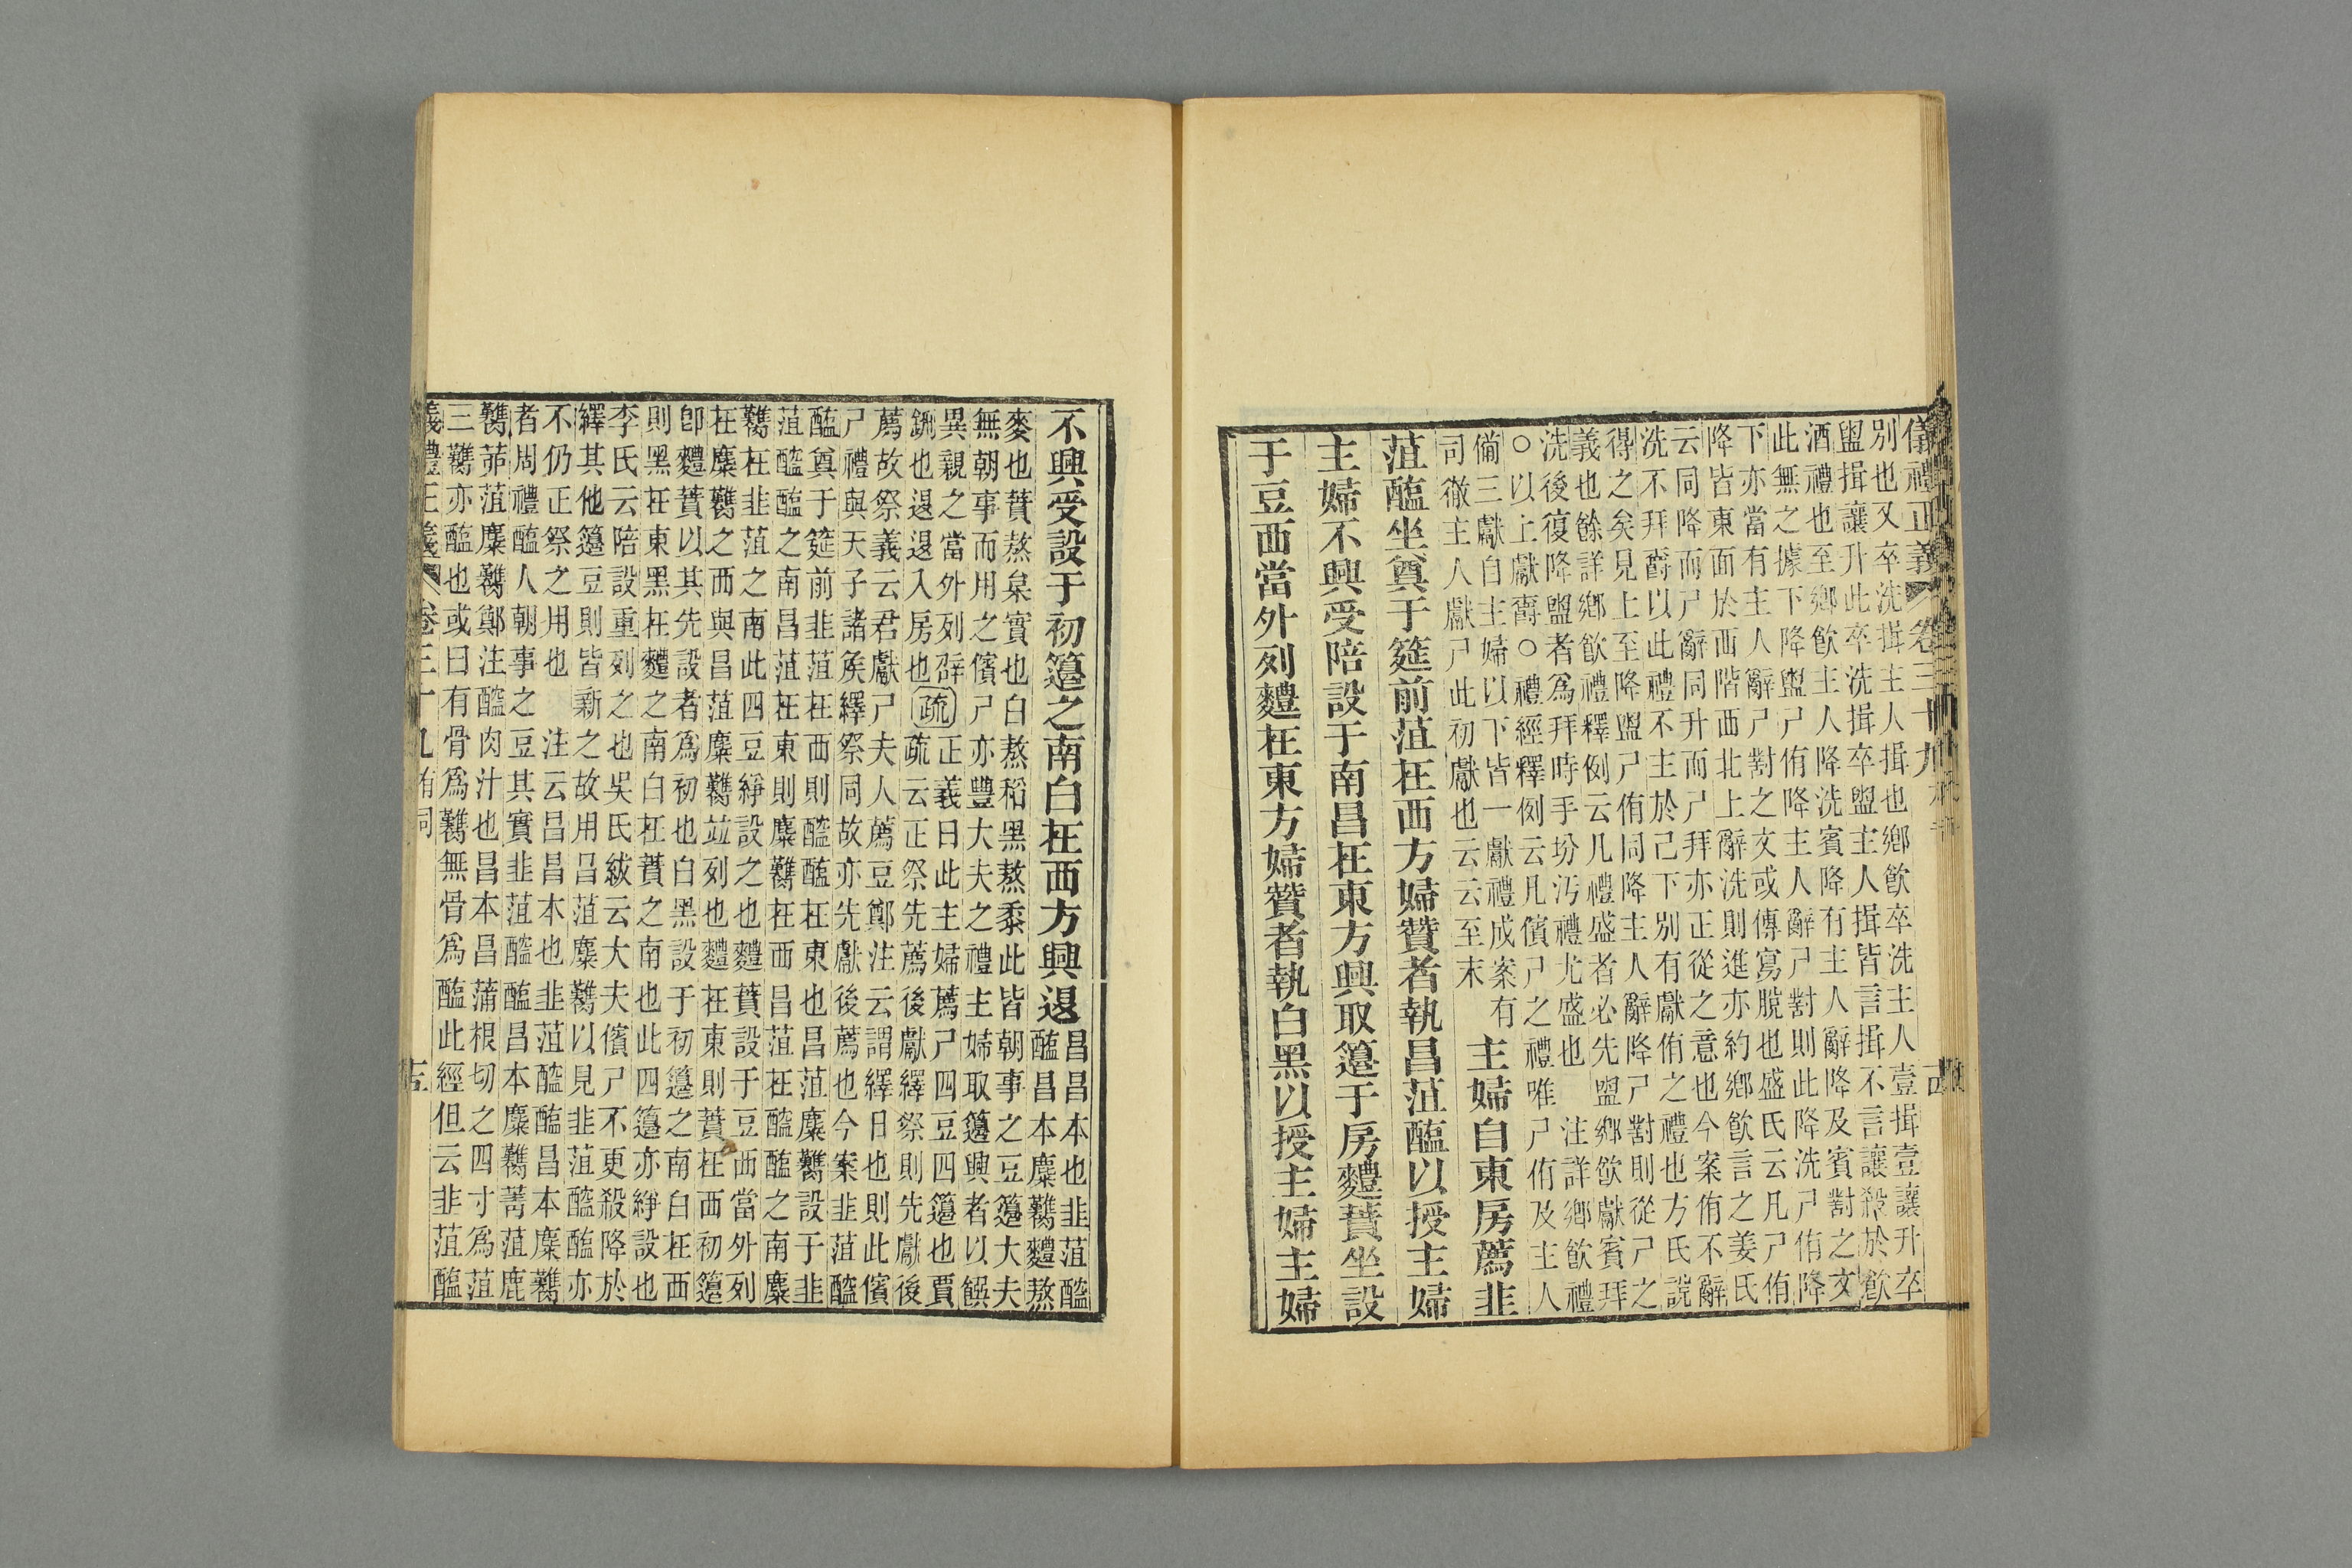 儀禮正義 卷三十九
別也又卒洗揖主人揖也鄉飲卒洗主人壹揖壹讓升卒
盥揖讓升此卒洗揖卒盥主人揖皆言揖不言讓殺於飲
酒禮也至鄉飲主人降洗賓降有主人辭降及賓對之文
此無之據下降盥尸侑降主人辭尸對則此降洗尸侑降
下亦當有主人辭尸對之文或傳寫脫也盛氏云凡尸侑
降皆東面於西階西北上辭洗則進亦約鄉飲言之姜氏
云同降而尸辭同升而尸拜亦正從之意也今案侑不辭
洗不拜爵以此禮不主於己下別有獻侑之禮也方氏說
得之矣見上至降盥尸侑同降主人辭降尸對則從尸之
義也餘詳鄉飲禮釋例云凡禮盛者必先盥鄉飲獻賓拜
洗後復降盥者爲拜時手坋汚禮尤盛也 注詳鄉飲禮
○以上獻齊○禮經釋例云凡儐尸之禮唯尸侑及主人
備三獻自主婦以下皆一獻禮成案有
司徹主人獻尸此初獻也云云至末
主婦自東房薦韭
菹醢坐奠于筵前菹在西方婦贊者執昌菹醢以授主婦
主婦不興受陪設于南昌在東方興取籩于房麷蕡坐設
于豆西當外列麷在東方婦贊者執白黑以授主婦主婦
不興受設于初籩之南白在西方興退
昌昌本也韭菹醢
醢昌本麋臡麷熬
麥也蕡熬枲實也白熬稻黑熬黍此皆朝事之豆籩大夫
無朝事而用之儐尸亦豐大夫之禮主婦取籩興者以饌
異親之當外列辟
鉶也退退入房也
疏
正義曰此主婦薦尸四豆四籩也賈
疏云正祭先薦後獻繹祭則先獻後
薦故祭義云君獻尸夫人薦豆鄭注云謂繹日也則此儐
尸禮與天子諸矦繹祭同故亦先獻後薦也今案韭菹醓
醢奠于筵前韭菹在西則醓醢在東也昌菹麋臡設于韭
菹醓醢之南昌菹在東則麋臡在西昌菹在醓醢之南麋
臡在韭菹之南此四豆綪設之也麷蕡設于豆西當外列
在麋臡之西與昌菹麋臡竝列也麷在東則蕡在西初籩
卽麷蕡以其先設者爲初也白黑設于初籩之南白在西
則黑在東黑在麷之南白在蕡之南也此四籩亦綪設也
李氏云陪設重列之也吳氏紱云大夫儐尸不更殺降於
繹其他籩豆則皆新之故用昌菹麋臡以見韭菹醓醢亦
不仍正祭之用也 注云昌昌本也韭菹醓醢昌本麋臡
者周禮醢人朝事之豆其實韭菹醓醢昌本麋臡菁菹鹿
臡茆菹麋臡鄭注醓肉汁也昌本昌蒲根切之四寸爲菹
三臡亦醢也或曰有骨爲臡無骨爲醢此經但云韭菹醢